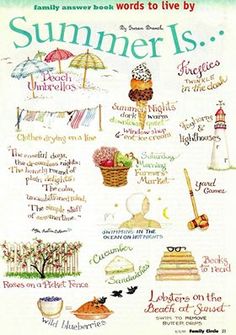 family answer book words to live by
Summer Is...
By Susan Branch
Beach
Umbrellas
Fireflies
TWINKLE
in the dark
Summer Nights
dark & warm
window shop
eat ice cream
Clothes drying on a line
Hydrangeas &
Lighthouses
"The careful days,
the dreamless nights;
The homely round of
plain delights;
The calm,
unambitioned mind,
The simple stuff
of summertime."
Saturday
Morning
Farmers
Market
Yard
Games
SWIMMING IN THE
OCEAN ON HOT NIGHTS
Roses on a Picket Fence
Cucumber
Sandwiches
Books
to read
wild blueberries
Lobsters on the
Beach at Sunset
SWIM TO REMOVE
BUTTER DRIPS
Family Circle